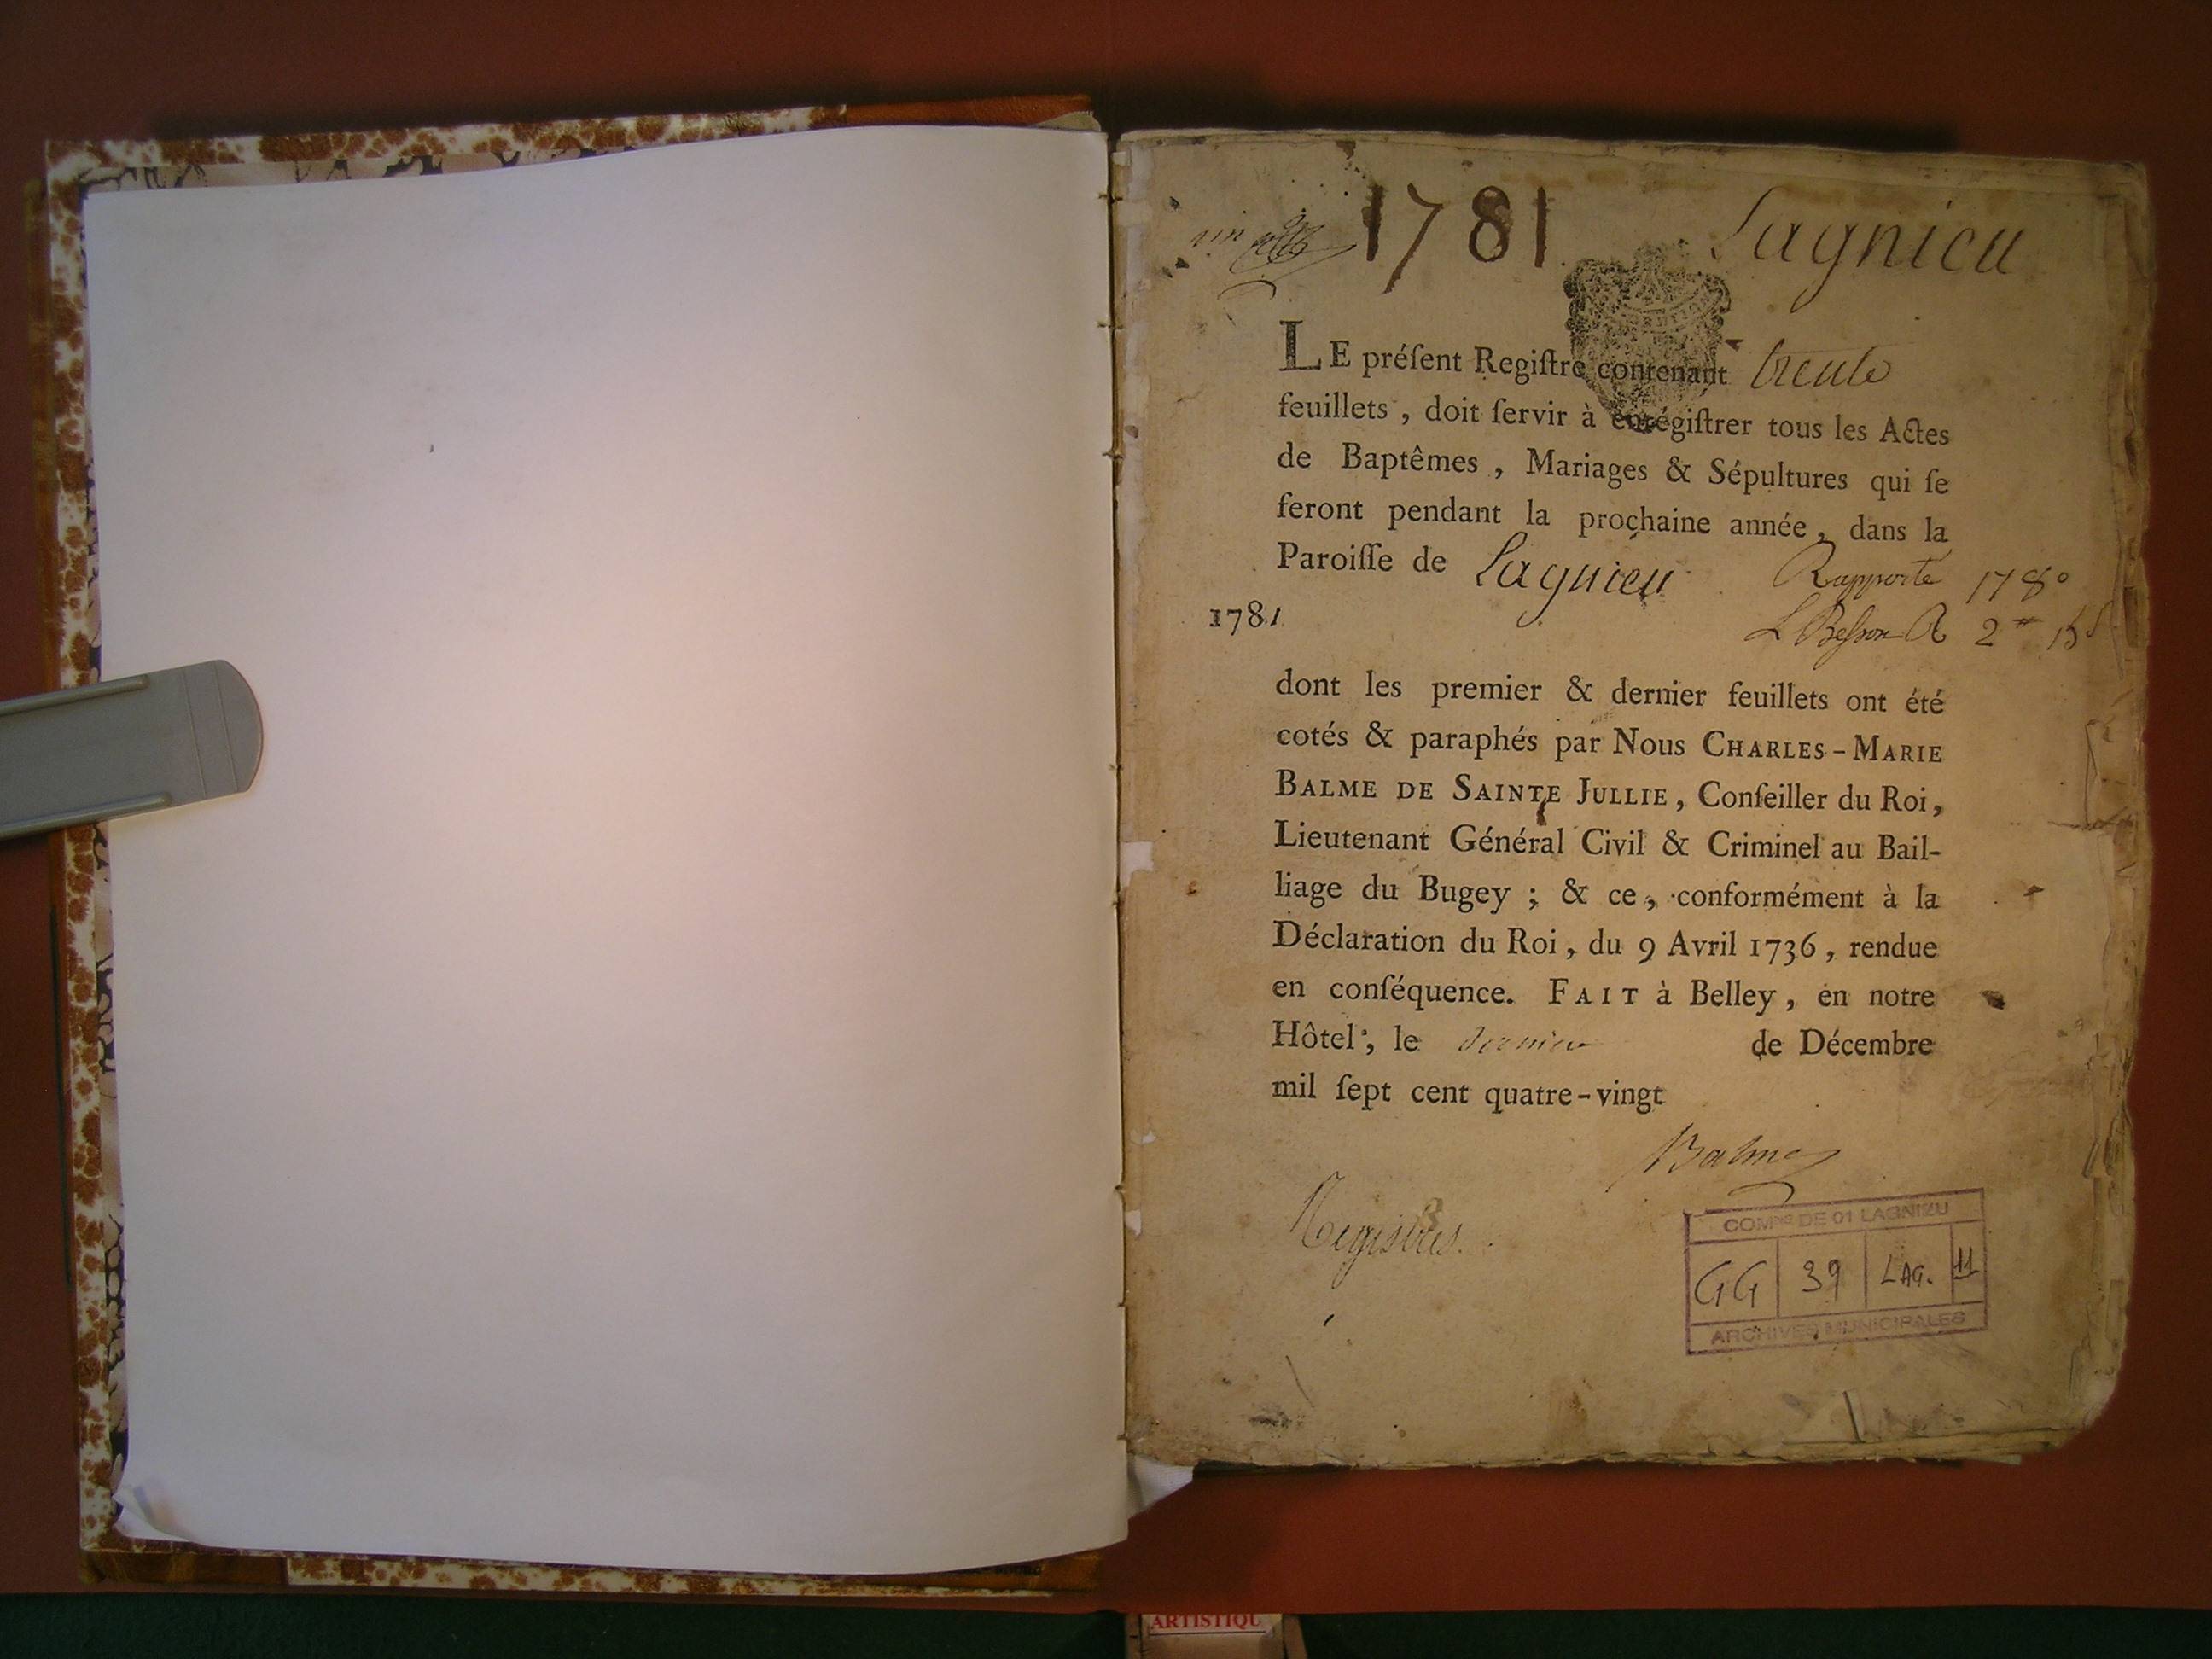 1781 Lagnieu
LE préſent Regiſtre contenant trente
feuillets, doit ſervir à enrégiſtrer tous les Actes
de Baptêmes, Mariages & Sépultures qui ſe
feront pendant la prochaine année, dans la
Paroiſſe de Lagnieu Rapporté 1780
1781 L Besson R 2
dont les premier & dernier feuillets ont été
cotés & paraphés par Nous CHARLES-MARIE
BALME DE SAINTE JULLIE, Conſeiller du Roi,
Lieutenant Général Civil & Criminel au Bail-
liage du Bugey ; & ce, conformément à la
Déclaration du Roi, du 9 Avril 1736, rendue
en conſéquence. FAIT à Belley, en notre
Hôtel, le dernier de Décembre
mil ſept cent quatre-vingt
Balme
Registres.
COMNE DE 01 LAGNIEU
GG 39 LAG. 11
ARCHIVES MUNICIPALES
ARTISTIQU